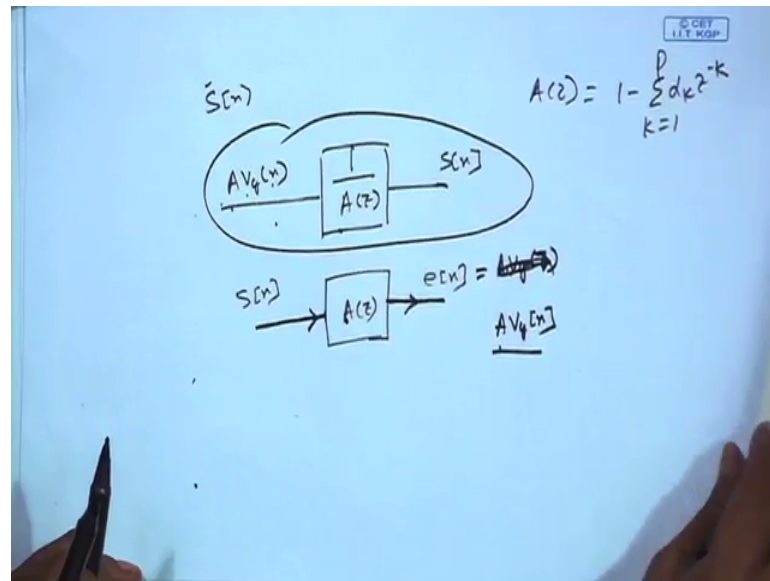 © CET
I.I.T. KGP
S[n]
A(z) = 1 - p Σ k=1 αk z^-k
AVg(n) 1/A(z) S[n]
S[n] A(z) e[n] =
AVg[n]